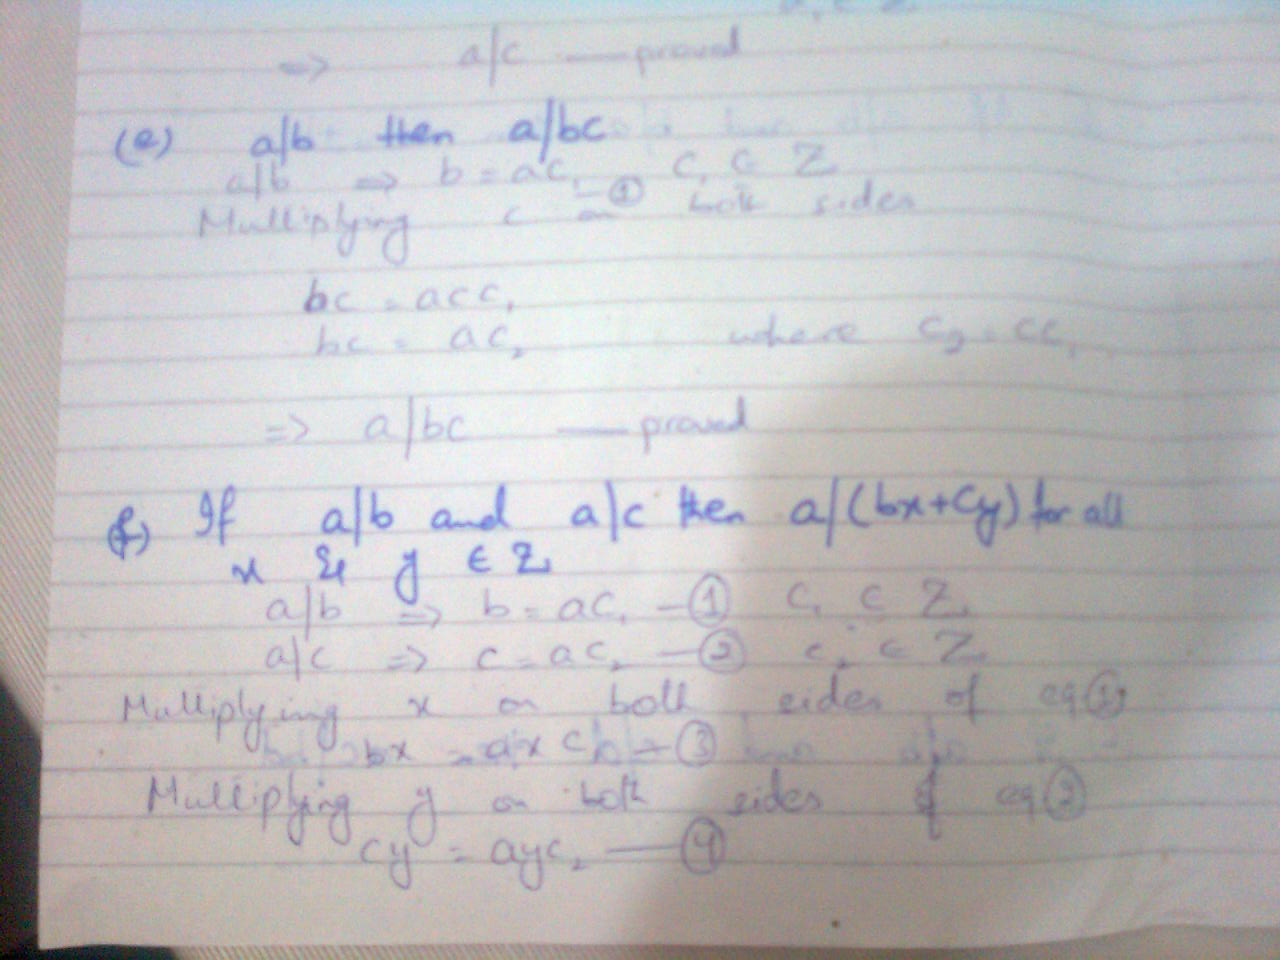 ⇒ a|c — proved
(e) a|b then a|bc
a|b ⇒ b = ac₁ — ① c₁ ∈ Z
Multiplying c on both sides
bc = acc₁
bc = ac₂ where c₂ = cc₁
⇒ a|bc — proved
(f) If a|b and a|c then a|(bx+cy) for all
x & y ∈ Z
a|b ⇒ b = ac₁ — ① c₁ ∈ Z
a|c ⇒ c = ac₂ — ② c₂ ∈ Z
Multiplying x on both sides of eq ①
bx = axc₁ — ③
Multiplying y on both sides of eq ②
cy = ayc₂ — ④